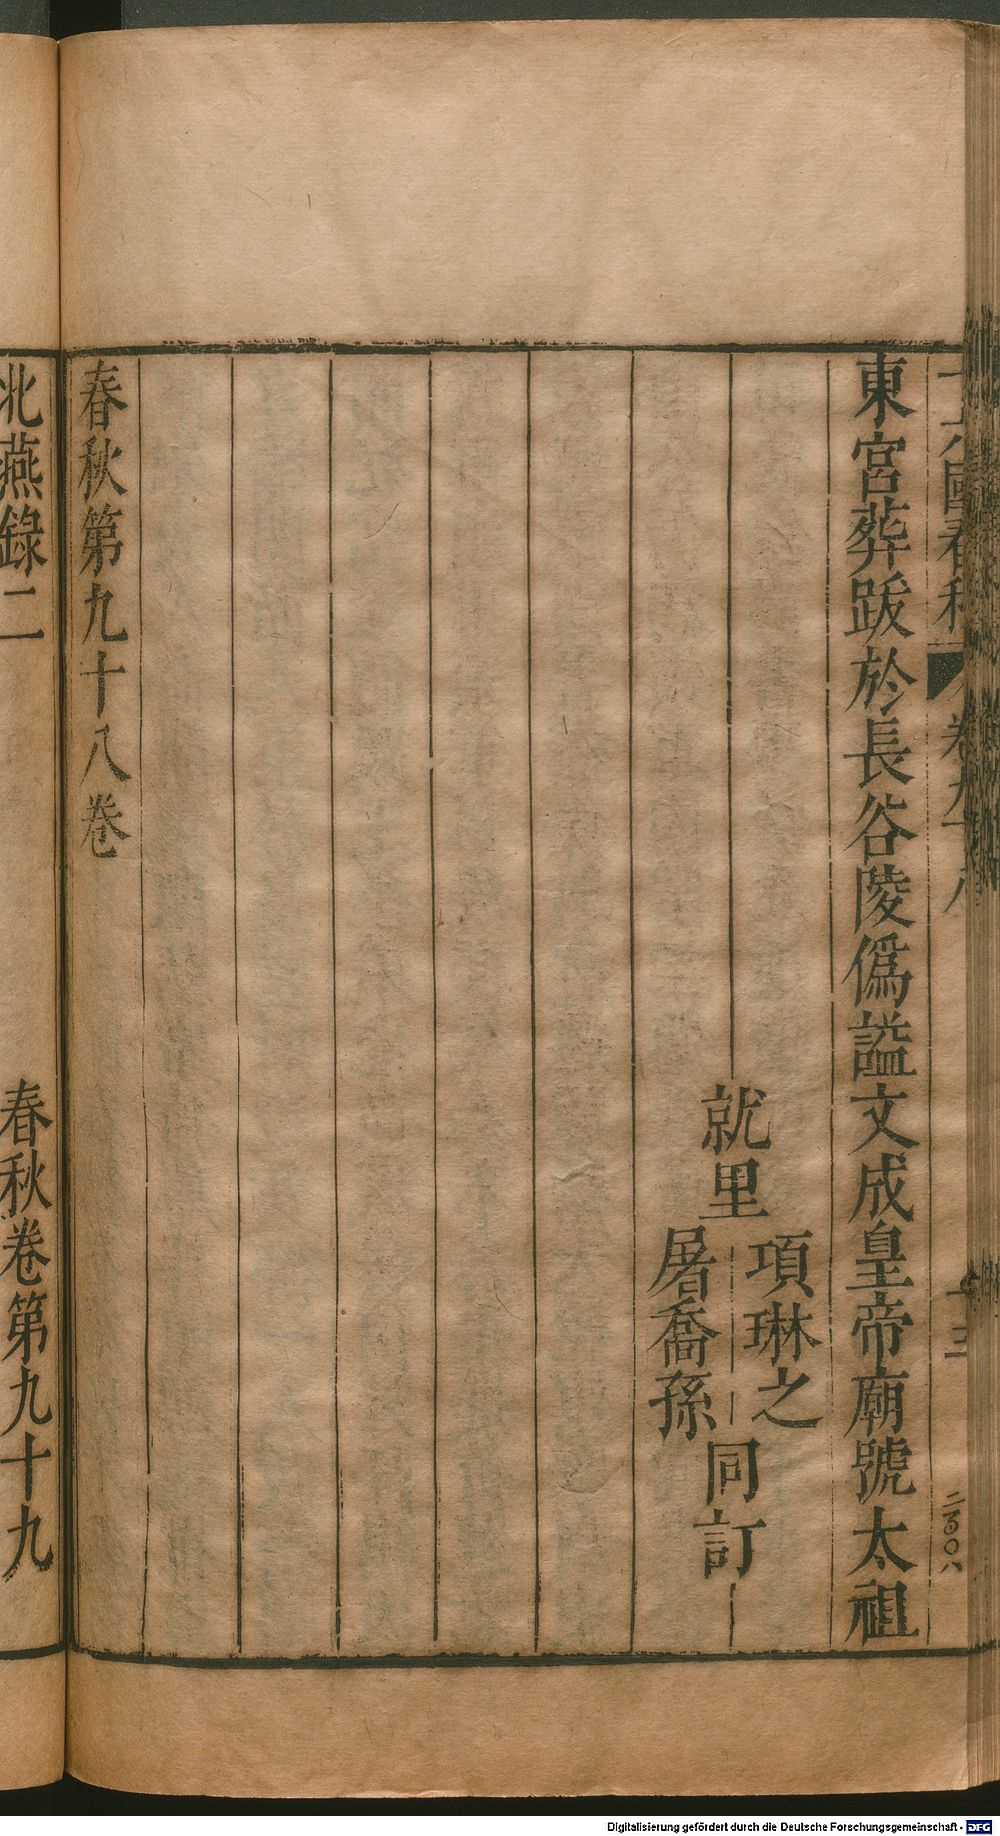 十六國春秋 卷九十八 十三
東宮葬跋於長谷陵僞諡文成皇帝廟號太祖
就里
項琳之
屠喬孫
同訂
春秋第九十八卷
北燕錄二 春秋卷第九十九
Digitalisierung gefördert durch die Deutsche Forschungsgemeinschaft - DFG